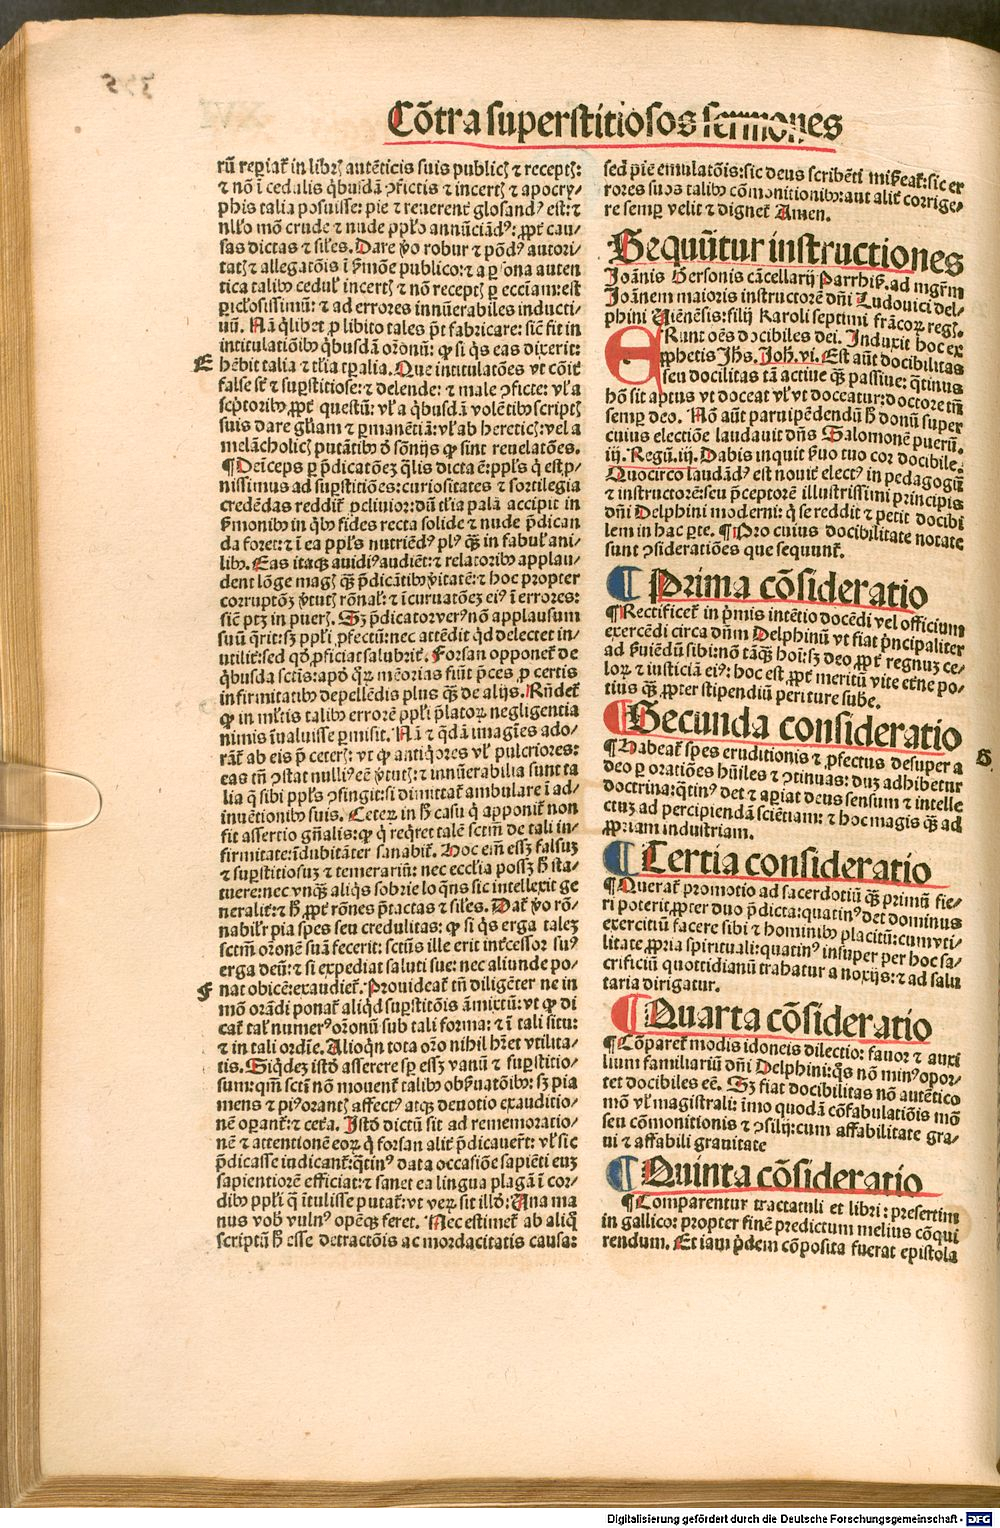 Cōtra superstitiosos sermones
rū reꝑiat᷑ in librꝭ autēticis suis publicꝭ ⁊ receptꝭ:
⁊ nō ī cedulis q̇busdā ꝯfictis ⁊ incertꝭ ⁊ apocry-
phis talia posuisse: pie ⁊ reuerent᷑ glosandꝰ est: ⁊
nll̓o mō crude ⁊ nude ppl̓o annūciādꝰ: ꝓpt̓ cau-
sas dictas ⁊ sil̓es. Dare ṽo robur ⁊ pōdꝰ autori-
tatꝭ ⁊ allegatōis ī s̓mōe publico: ⁊ a ꝑsona auten
tica talibꝰ cedul̓ incertꝭ ⁊ nō receptꝭ ꝑ eccl̓iam: est
ꝑiclosissimū: ⁊ ad errores innūerabiles inducti-
uū. Nā q̇libet ꝓ libito tales pn̄t fabricare: sicut̄ fit in
intitulatiōibꝰ q̇busdā or̄onū: ꝙ si q̇s eas dixerit:
E
hēbit talia ⁊ tl̓ia tꝑalia. Que intitulatōes vt cōit̓
false sūt ⁊ suꝑstitiose: ⁊ delende: ⁊ male ꝯficte: vl̓ a
scp̄toribꝰ ꝓpt̓ questū: vl̓ a q̇busdā volētibꝰ scriptꝭ
suis dare gl̓iam ⁊ ꝑmanētiā: vl̓ ab hereticꝭ: vel a
melācholicꝭ putātibꝰ ꝺ̄ sōnijs ꝙ sint reuelatōes.
¶ Deīceps ꝑ p̄dicatōeꝫ q̄lis dicta ē: ppl̓s q̇ est ꝓ-
nissimus ad suꝑstitiōes: curiositates ⁊ sortilegia
credēdas reddit᷑ ꝓcliuior: dū tl̓ia palā accipit in
s̓monibꝰ in q̇bꝰ fides recta solide ⁊ nude p̄dican
da foret: ⁊ ī ea ppl̓s nutriēdꝰ plꝰ q̄ꝫ in fabul̓ ani-
libꝰ. Eas itaqꝫ auidiꝰ audiēt: ⁊ relatoribꝰ applau-
dent lōge magꝭ q̄ꝫ p̄dicātibꝰ ṽitatē: ⁊ hoc propter
corruptōꝫ ṽtutꝭ rōnal̓: ⁊ īcuruatōeꝫ eiꝰ ī errores:
sicut̄ ptꝫ in puerꝭ. Sꝫ p̄dicator verꝰ nō applausum
suū q̄rit: sꝫ ppl̓i ꝓfectū: nec attēdit qd̓ delectet in-
utilit᷑: sed qd̓ ꝓficiat salubrit᷑. Forsan opponet᷑ de
q̇busda sctīs: apd̓ qͦꝝ memorias fiūt p̄ces ꝓ certis
infirmitatibꝰ depellēdis plus q̄ꝫ de alijs. Rn̄det᷑
ꝙ in ml̓tis talibꝰ errorē ppl̓i p̄latoꝝ negligentia
nimis īualuisse ꝑmisit. Nā ⁊ q̄dā imagīes ado-
rāt᷑ ab eis p̄ ceterꝭ: vt ꝙ antiq̇ores vl̓ pulcriores:
eas tn̄ ꝯstat nulliꝰ eē ṽtutꝭ: ⁊ innūerabilia sunt ta
lia q̄ sibi ppl̓s ꝯfingit: si dimittat᷑ ambulare ī ad-
inuētionibꝰ suis. Ceteꝝ in h̄ casu q̇ apponit᷑ non
fit assertio gn̄alis: ꝙ q̇ req̇ret talē sctm̄ de tali in-
firmitate: īdubitāter sanabit᷑. Hoc em̄ essꝫ falsuꝫ
⁊ suꝑstitiosuꝫ ⁊ temerariū: nec eccl̓ia possꝫ h̄ sta-
tuere: nec vnq̄ꝫ aliq̇s sobrie loq̄ns sic intellexit ge
neralit᷑: ⁊ h̄ ꝓpt̓ rōnes p̄tactas ⁊ sil̓es. Dat᷑ ṽo rō-
nabil̓r pia spes seu credulitas: ꝙ si q̇s erga taleꝫ
sctm̄ or̄onē suā fecerit: sctūs ille erit int̓cessor suꝰ
erga deū: ⁊ si expediat saluti sue: nec aliunde po-
F
nat obicē: exaudiet᷑. Prouideat᷑ tn̄ diligēter ne in
mō orādi ponat᷑ aliq̇d suꝑstitōis āmixtū: vt ꝙ di
cat᷑ tal̓ numerꝰ or̄onū sub tali forma: ⁊ ī tali situ:
⁊ in tali ordīe. Alioq̇n tota or̄o nihil hr̄et vtilita-
tis. Siq̇deꝫ istd̓ asserere sꝑ essꝫ vanū ⁊ suꝑstitio-
sum: qm̄ sctī non mouent᷑ talibꝰ obs̓uatōibꝰ: sꝫ pia
mens ⁊ piꝰ orantꝭ affectꝰ atqꝫ deuotio exauditio-
nē oꝑant᷑: ⁊ cet̓a. Istd̓ dictū sit ad rememoratio-
nē ⁊ attentionē eoꝝ q̇ forsan alit᷑ p̄dicauer̄t: vl̓ sic
p̄dicasse iudicant᷑: q̄tinꝰ data occasiōe sapiēti euꝫ
sapientiorē efficiat: ⁊ sanet ea lingua plagā ī cor-
dibꝰ ppl̓i q̄ ītulisse putat᷑: vt veꝝ sit illd̓: Vna ma
nus vob̓ vulnꝰ opēqꝫ feret. Nec estimet᷑ ab aliq̇
scriptū h̄ esse detractōis ac mordacitatis causa:
sed pie emulatōis: sic deus scribēti mis̓eat᷑: sic er
rores suos talibꝰ cōmonitionibꝰ: aut alit᷑ corrige-
re semꝑ velit ⁊ dignet᷑ Amen.
Sequūtur instructiones
Joānis Gersonis cācellarij Parrhis̓. ad mgr̄m
Joānem maioris instructorē dn̄i Ludouici del-
phini Uienēsis: filij Karoli septimi frācoꝝ regꝭ.
ERunt oēs docibiles dei. Induxit hoc ex
ꝓphetis Jhs̄. Joh̄. vi. Est aūt docibilitas
seu docilitas tā actiue q̄ꝫ passiue: q̄tinus
hō sit aptus vt doceat vl̓ vt doceatur: doctore tn̄
semꝑ deo. Nō aūt paruipēdendū h̄ donū super
cuius electiōe laudauit dn̄s Salomonē puerū.
iij. Regū. iij. Dabis inquit s̓uo tuo cor docibile.
Quocirca laudādꝰ est nouit᷑ electꝰ in pedagogū
⁊ instructorē: seu p̄ceptorē illustrissimi principis
dn̄i Delphini moderni: q̇ se reddit ⁊ petit docibi
lem in hac ꝑte. ¶ Pro cuius docibilitate notate
sunt ꝯsideratiōes que sequunt᷑.
¶ Prima cōsideratio
¶ Rectificet᷑ in p̓mis intētio docēdi vel officium
exercēdi circa dn̄m Delphinū vt fiat p̓ncipaliter
ad s̓uiēdū sibi: nō tāq̄ꝫ hoī: sꝫ deo ꝓpt̓ regnuꝫ ce-
loꝝ ⁊ iusticiā eiꝰ: hoc est ꝓpt̓ meritū vite et̓ne po-
tius q̄ꝫ ꝓpter stipendiū periture sube.
¶ Secunda consideratio
¶ Habeat᷑ spes eruditionis ⁊ ꝓfectus desuper a
G
deo ꝑ oratiōes hūiles ⁊ ꝯtinuas: duꝫ adhibetur
doctrina: q̄tinꝰ det ⁊ aꝑiat deus sensum ⁊ intelle
ctuꝫ ad percipiendā sciētiam: ⁊ hoc magis q̄ꝫ ad
ꝓpriam industriam.
¶ Tertia consideratio
¶ Querat᷑ promotio ad sacerdotiū q̄ꝫ primū fie-
ri poterit ꝓpter duo p̄dicta: quatinꝰ det dominus
exercitiū facere sibi ⁊ hominibꝰ placitū: cum vti-
litate ꝓpria spirituali: quatinꝰ insuper per hoc sa-
crificiū quottidianū trahatur a noxijs: ⁊ ad salu
taria dirigatur.
¶ Quarta cōsideratio
¶ Cōparet᷑ modis idoneis dilectio: fauor ⁊ auxi
lium familiariū dn̄i Delphini: q̇s nō minꝰ opor-
tet docibiles eē. Sꝫ fiat docibilitas nō autētico
mō vl̓ magistrali: īmo quodā cōfabulatiōis mō
seu cōmonitionis ⁊ ꝯsilij: cum affabilitate gra-
ui ⁊ affabili grauitate
¶ Quinta cōsideratio
¶ Comparentur tractatuli et libri: presertim
in gallico: propter finē predictum melius cōqui
rendum. Et iam p̓dem cōposita fuerat epistola
Digitalisierung gefördert durch die Deutsche Forschungsgemeinschaft - DFG